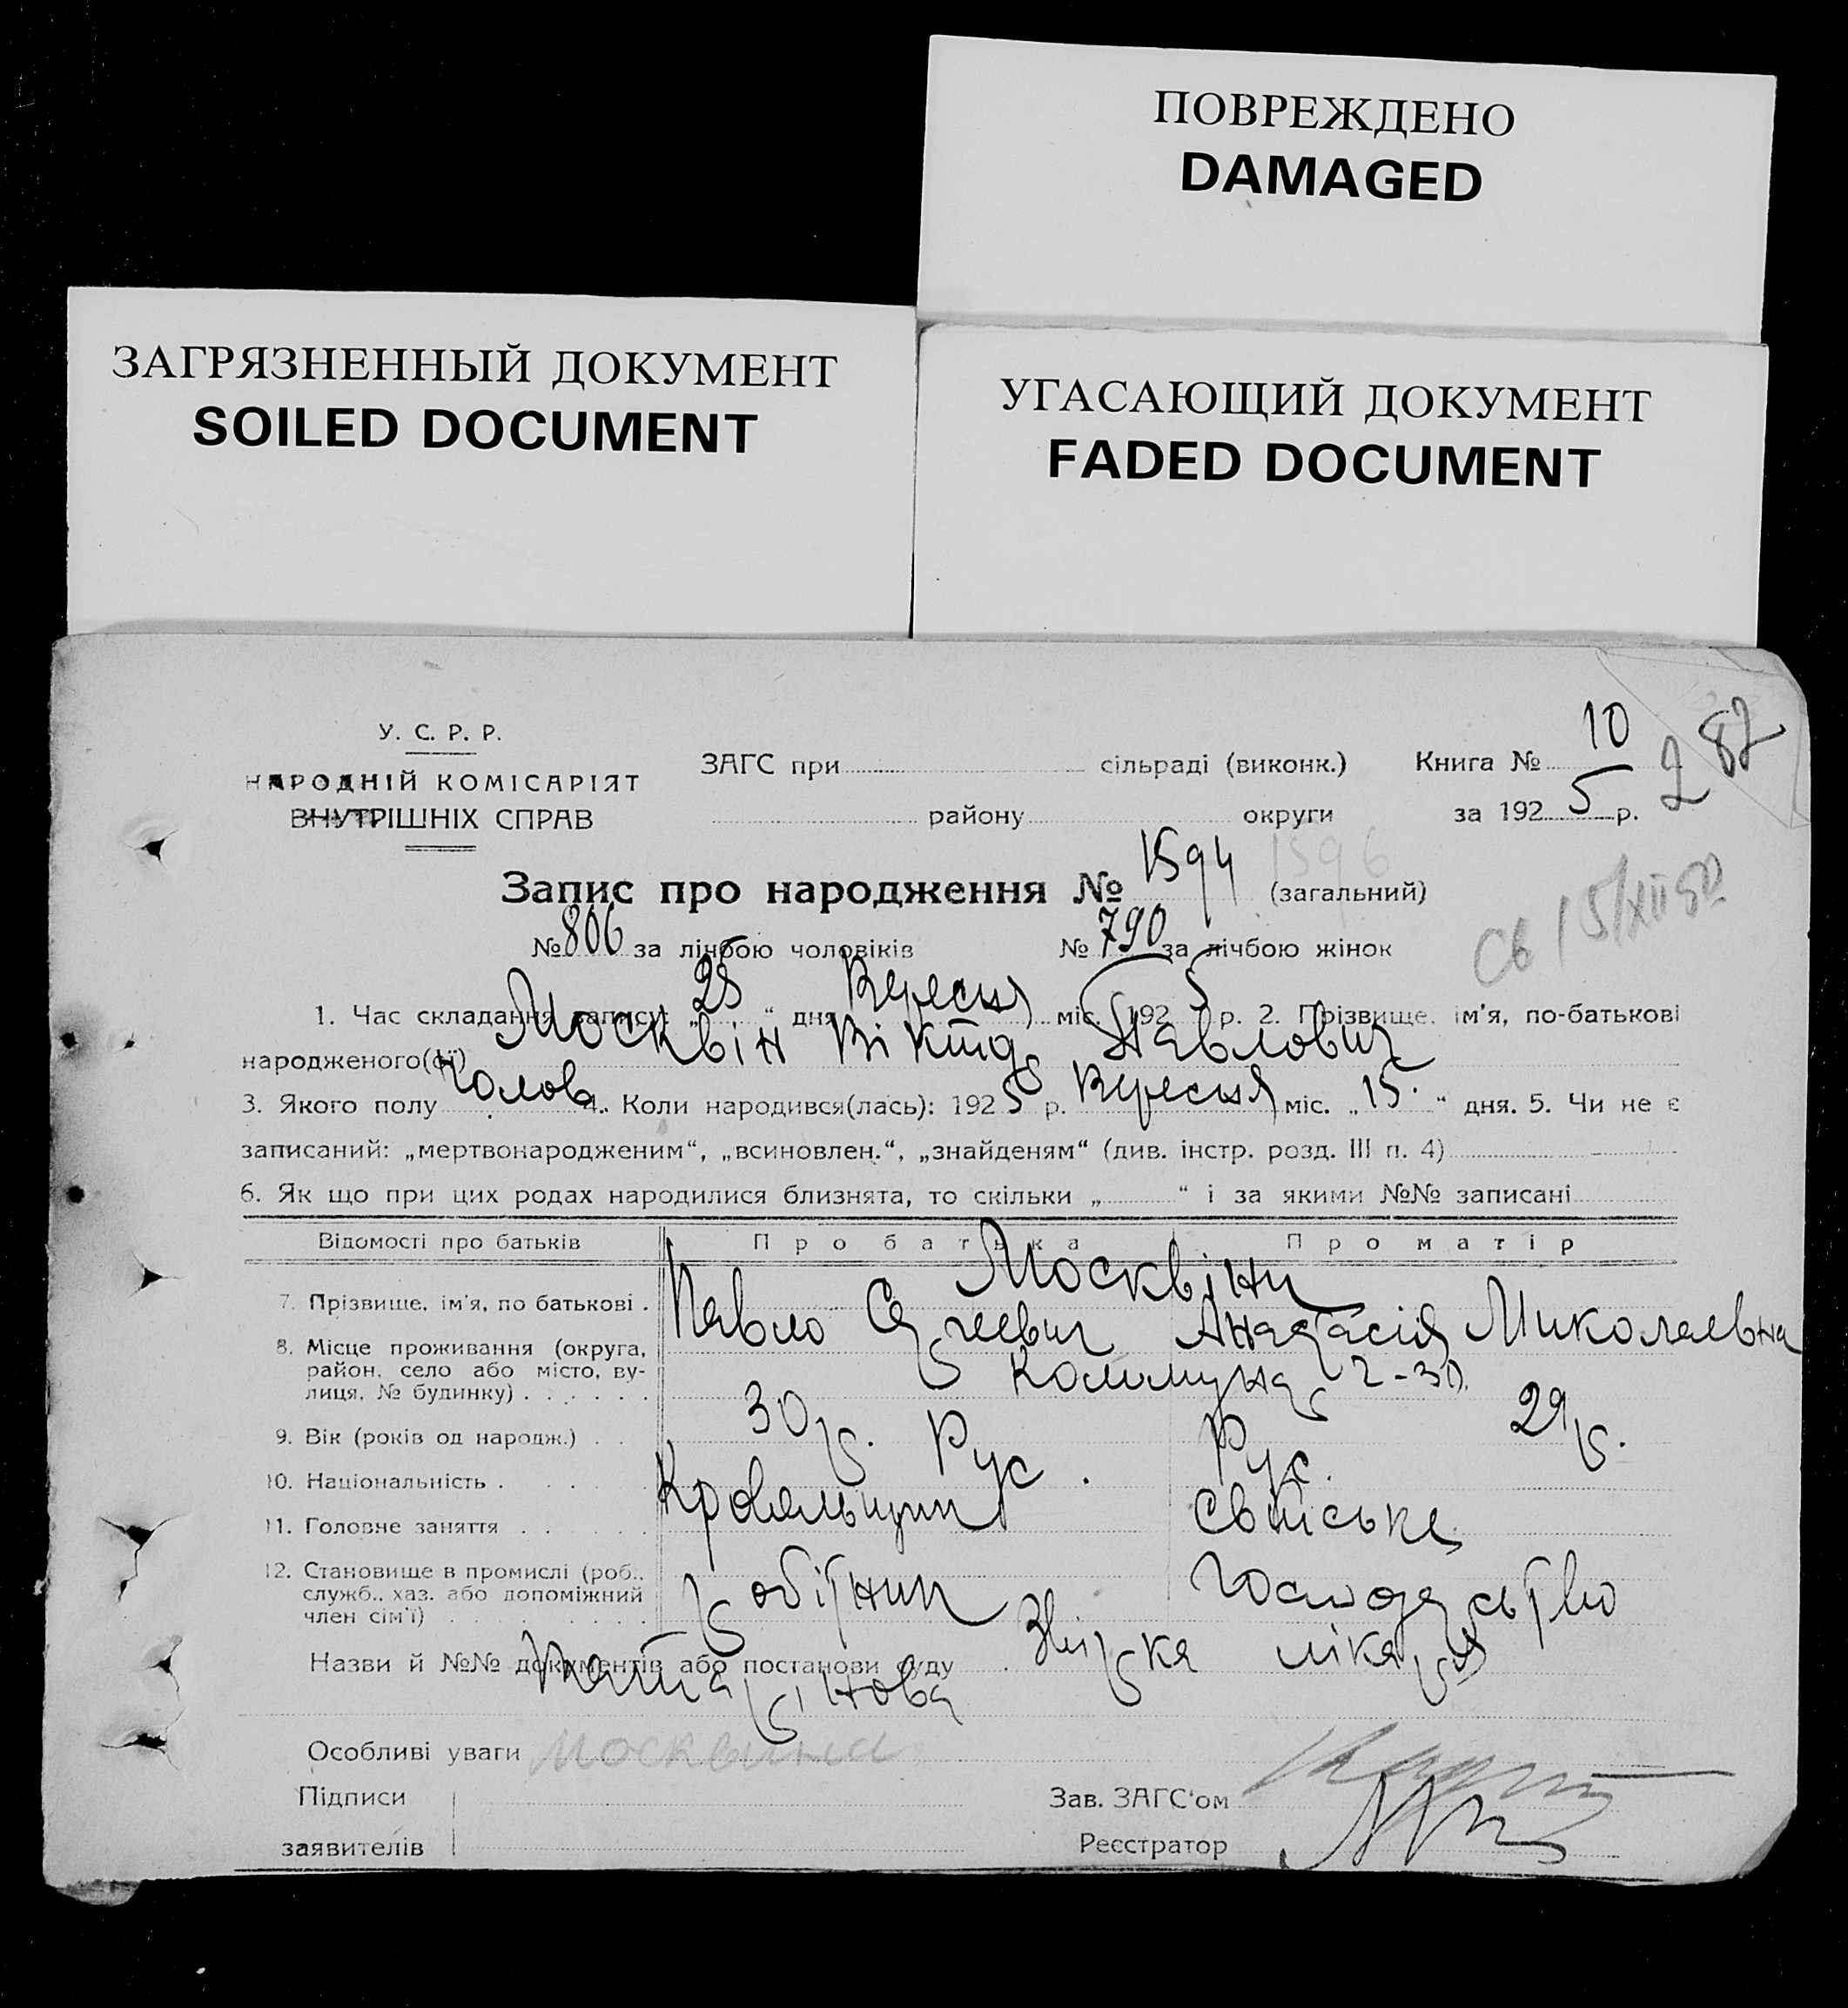 ПОВРЕЖДЕНО
DAMAGED
ЗАГРЯЗНЕННЫЙ ДОКУМЕНТ
SOILED DOCUMENT
УГАСАЮЩИЙ ДОКУМЕНТ
FADED DOCUMENT
У. С. Р. Р.
НАРОДНІЙ КОМІСАРІЯТ
ВНУТРІШНІХ СПРАВ
ЗАГС при сільраді (виконк.) Книга № 10
287
району округи за 1925 р.
Запис про народження № 1594 (загальний)
1596
№ 806 за лічбою чоловіків № 790 за лічбою жінок
1. Час складання запису: „25“ дня Вересня міс. 1925 р. 2. Прізвище, ім'я, по-батькові
народженого(ої) Москвін Віктор Павлович
3. Якого полу Чолов. 4. Коли народився(лась): 1925 р. Вересня міс. „15.“ дня. 5. Чи не є
записаний: „мертвонародженим“, „всиновлен.“, „знайденям“ (див. інстр. розд. III п. 4)
6. Як що при цих родах народилися близнята, то скільки „ “ і за якими №№ записані
Відомості про батьків Про батька Про матір
Москвіни
7. Прізвище, ім'я, по батькові . Павло Сергеевич Анастасія Миколаевна
8. Місце проживання (округа,
район, село або місто, ву-
лиця, № будинку) . . . . . . Коммунар 2-30.
9. Вік (років од народж.) . . 30 р. 29 р.
10. Національність . . . . . Рус. Рус.
11. Головне заняття . . . . . Кровельщик Свійське
12. Становище в промислі (роб.,
служб., хаз. або допоміжний
член сім'ї) . . . . . . . . робітник Господарство
Назви й №№ документів або постанови суду . Звірка лікаря
Катарінова
Особливі уваги Москвина
Підписи
заявителів
Зав. ЗАГС'ом
Реєстратор